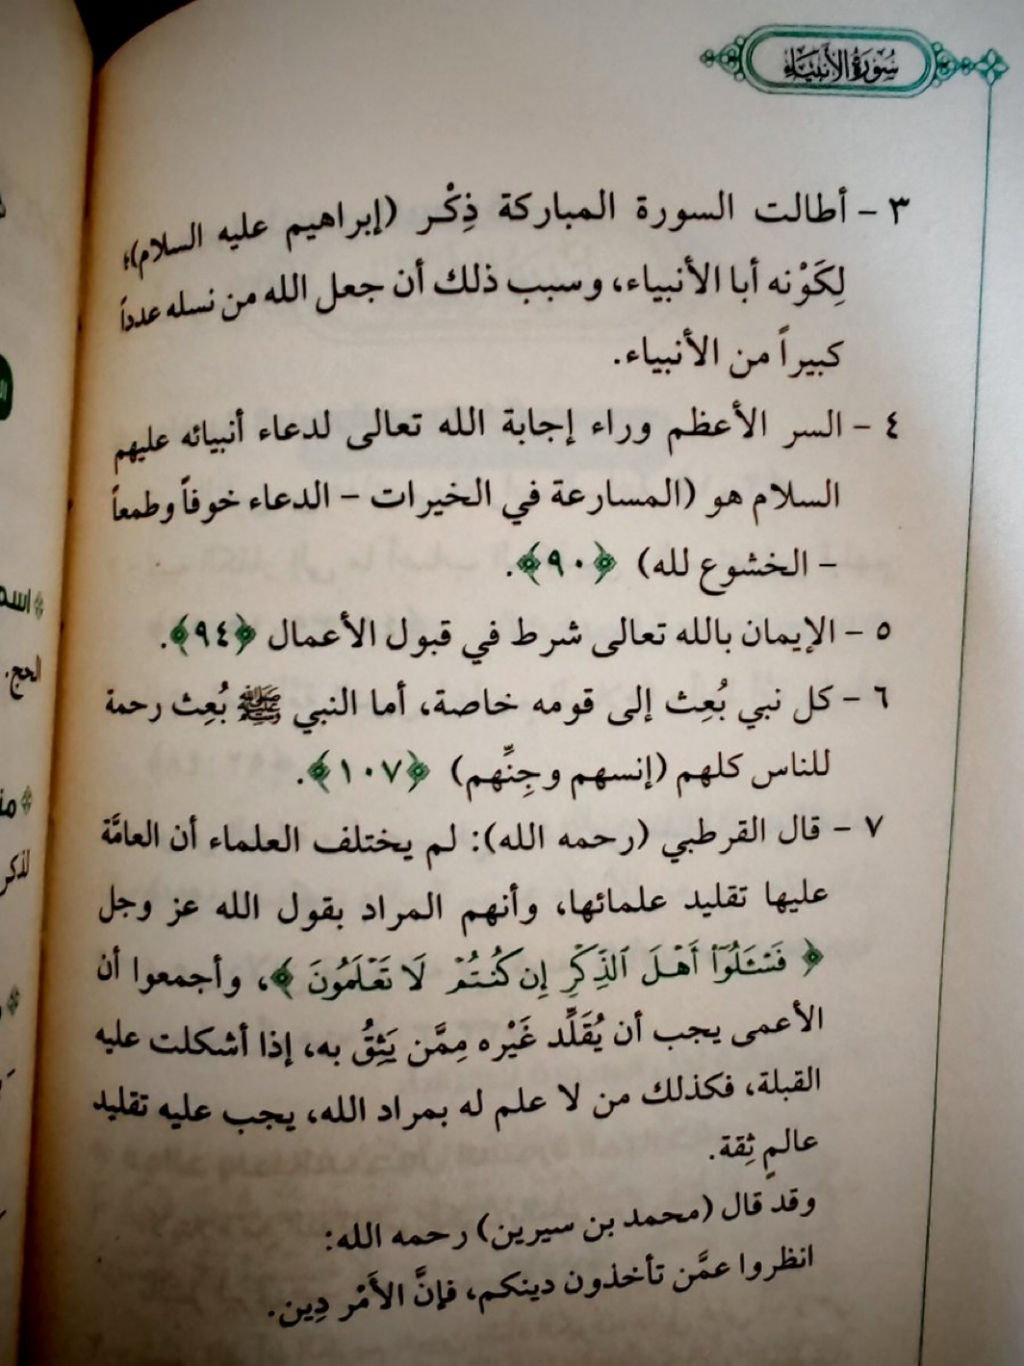 سُورَةُ الأَنبِيَاءِ
٣ - أطالت السورة المباركة ذِكْر (إبراهيم عليه السلام)؛
لِكَوْنه أبا الأنبياء، وسبب ذلك أن جعل الله من نسله عدداً
كبيراً من الأنبياء.
٤ - السر الأعظم وراء إجابة الله تعالى لدعاء أنبيائه عليهم
السلام هو (المسارعة في الخيرات - الدعاء خوفاً وطمعاً
- الخشوع لله) ﴿٩٠﴾.
٥ - الإيمان بالله تعالى شرط في قبول الأعمال ﴿٩٤﴾.
٦ - كل نبي بُعِث إلى قومه خاصة، أما النبي ﷺ بُعِث رحمة
للناس كلهم (إنسهم وجِنِّهم) ﴿١٠٧﴾.
٧ - قال القرطبي (رحمه الله): لم يختلف العلماء أن العامَّة
عليها تقليد علمائها، وأنهم المراد بقول الله عز وجل
﴿ فَسْـَٔلُوٓا۟ أَهْلَ ٱلذِّكْرِ إِن كُنتُمْ لَا تَعْلَمُونَ ﴾، وأجمعوا أن
الأعمى يجب أن يُقَلِّد غَيْره مِمَّن يَثِقُ به، إذا أشكلت عليه
القبلة، فكذلك من لا علم له بمراد الله، يجب عليه تقليد
عالمٍ ثِقة.
وقد قال (محمد بن سيرين) رحمه الله:
انظروا عمَّن تأخذون دينكم، فإنَّ الأَمْر دِين.
الحج.